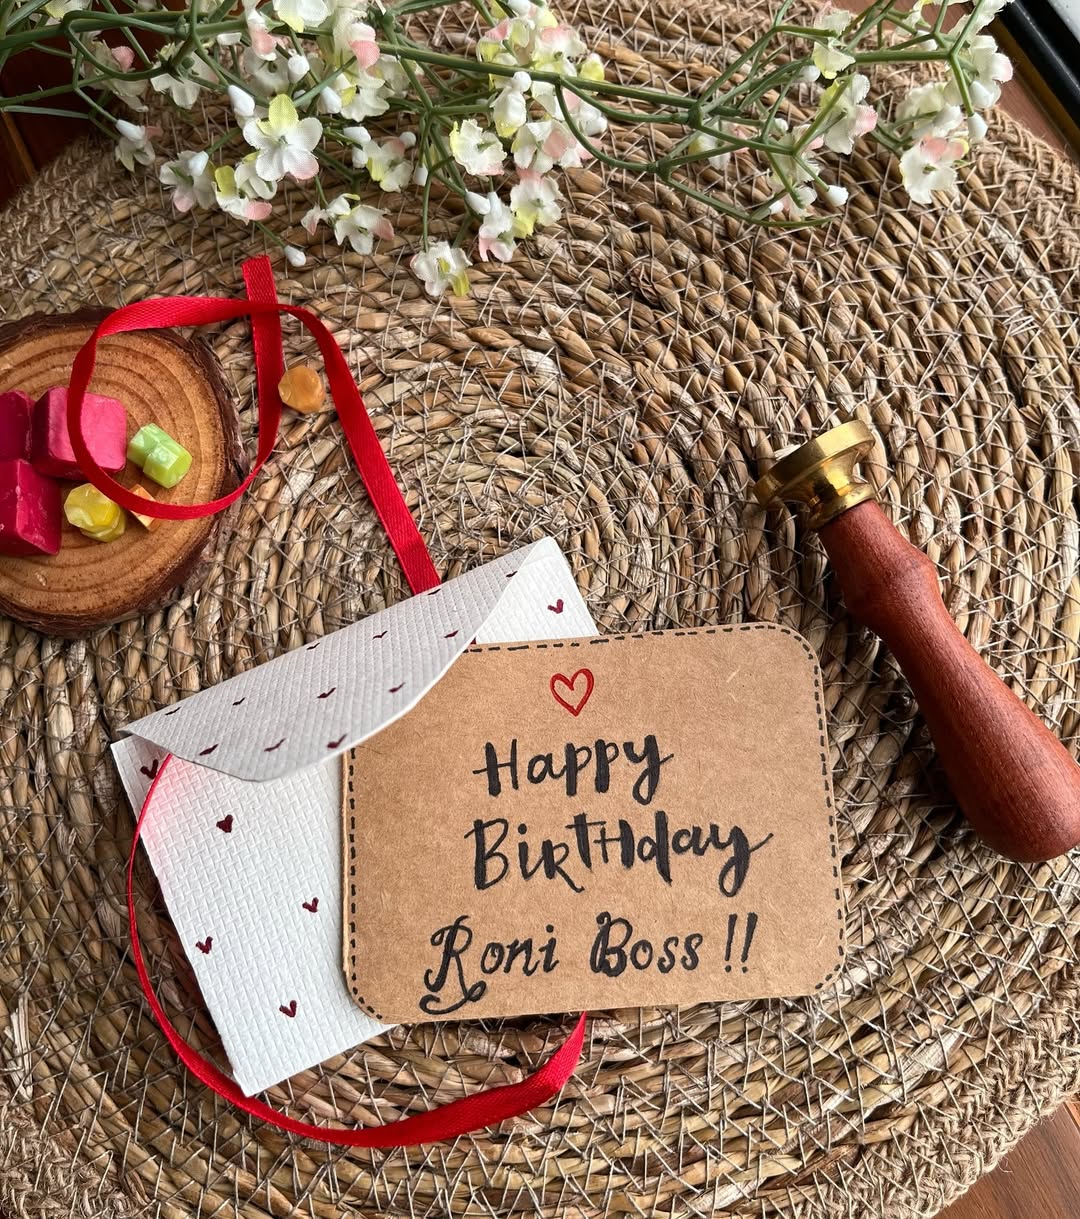 Happy
BirTHday
Roni Boss !!